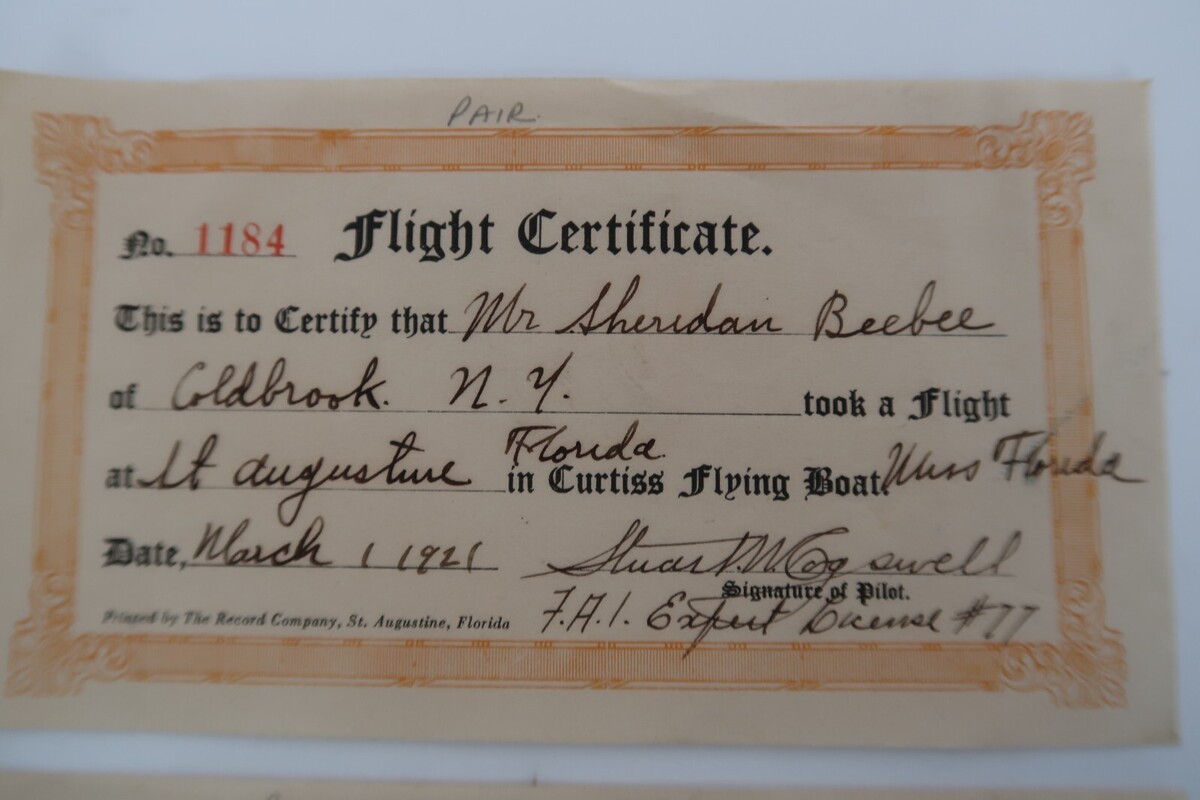 PAIR
No. 1184 Flight Certificate.
This is to Certify that Mr Sheridan Beebee
of Coldbrook. N. Y. took a Flight
at St Augustine Florida in Curtiss Flying Boat. Miss Florida
Date, March 1 1921 Stuart W Cogswell
Signature of Pilot.
Printed by The Record Company, St. Augustine, Florida F.A.I. Expert License #77